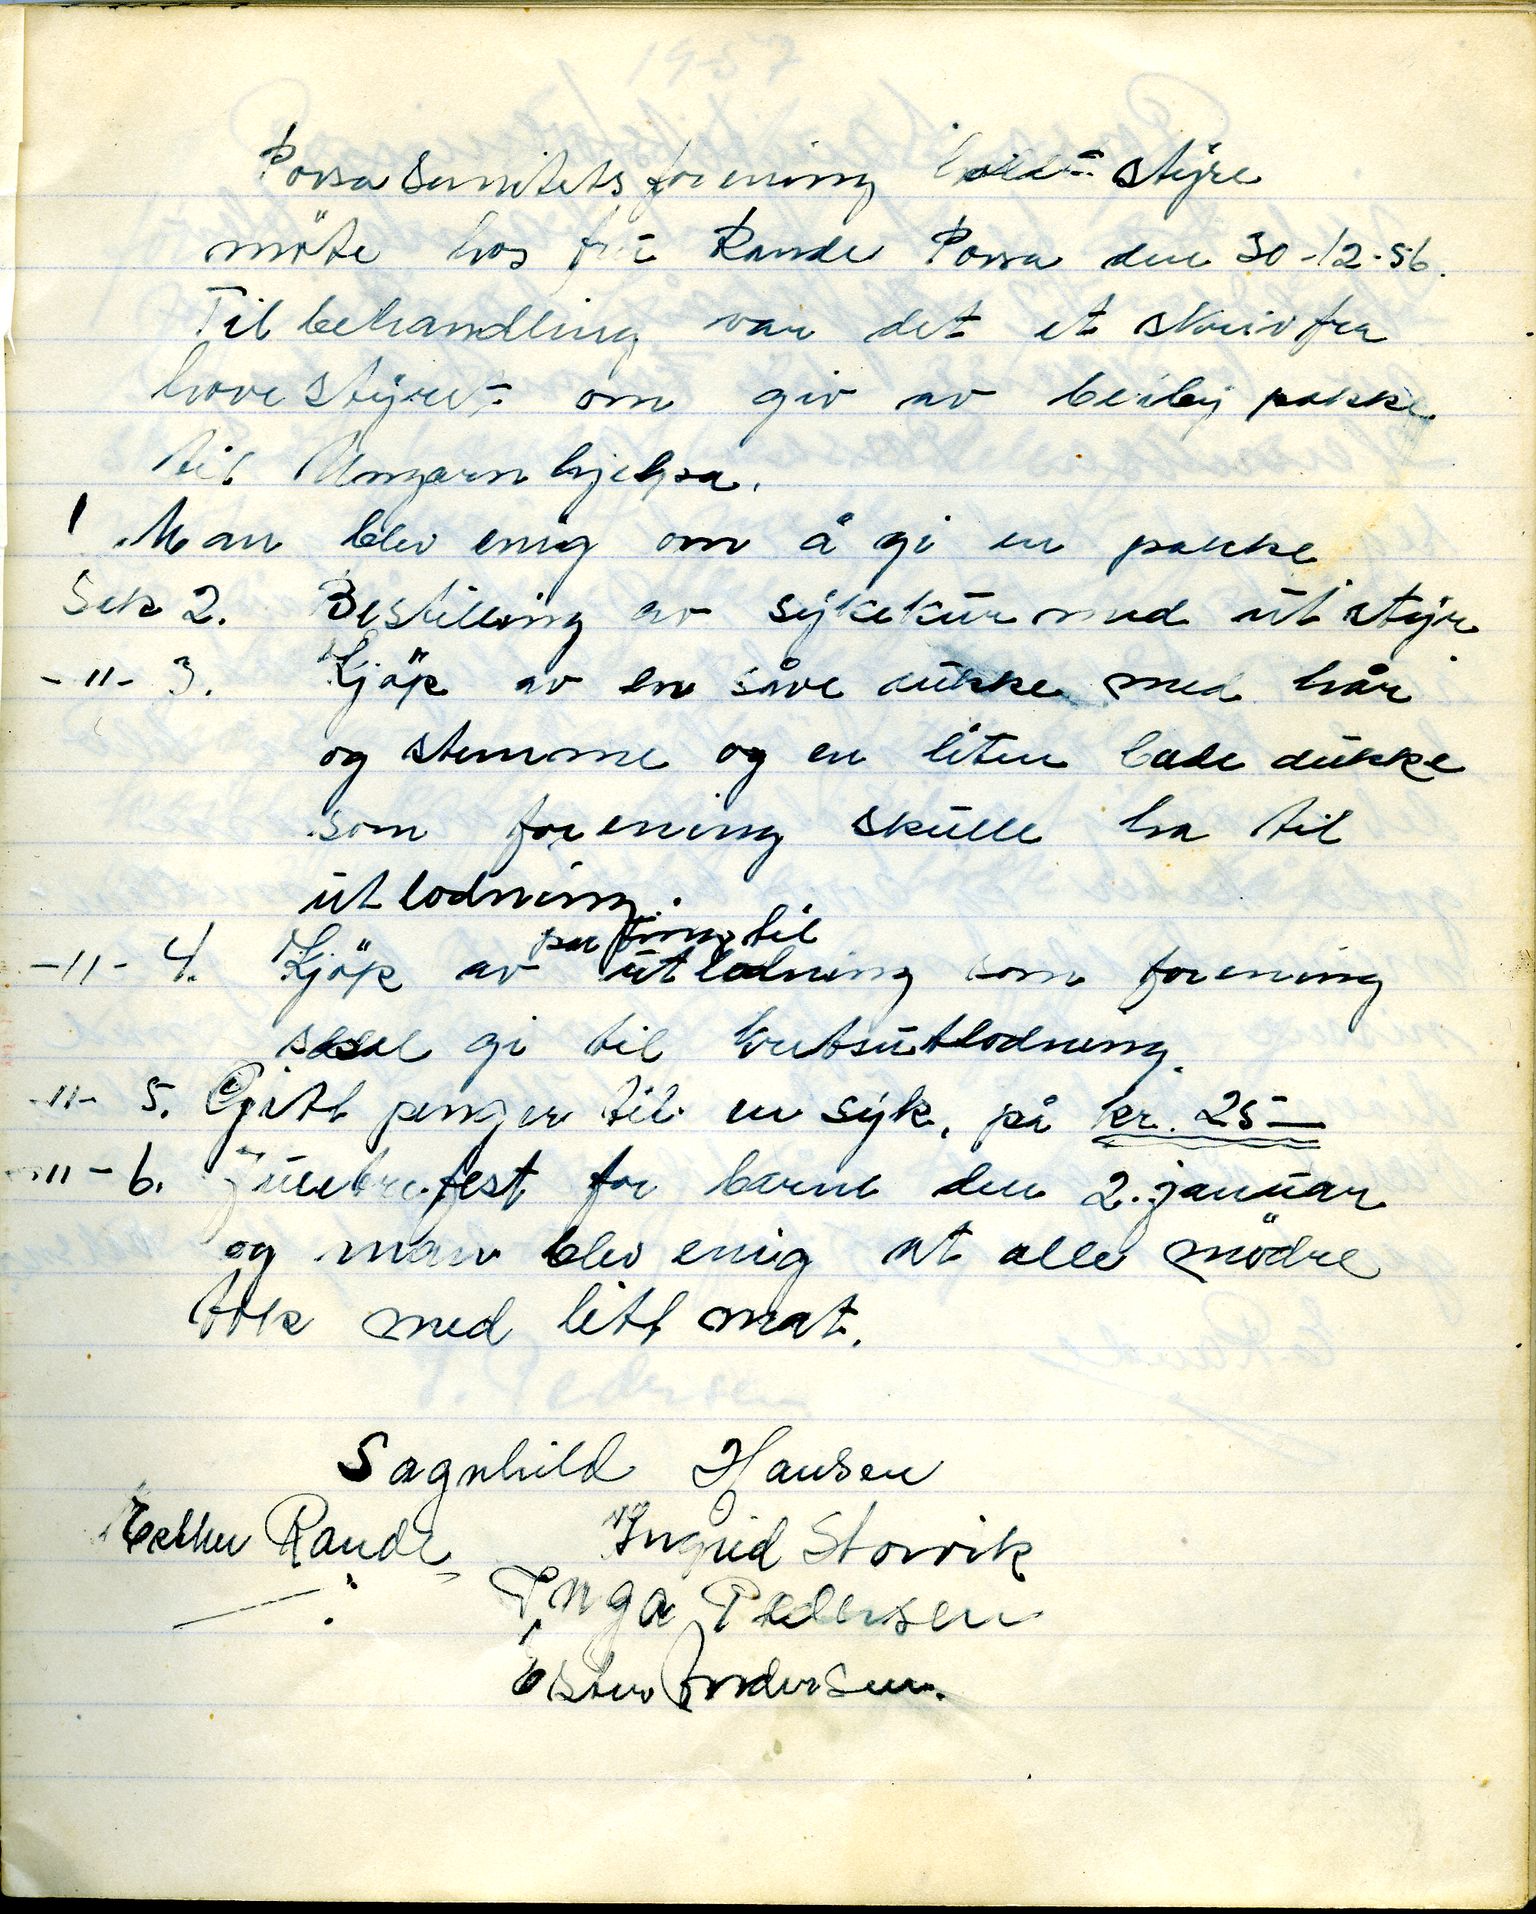 Porsa Sanitetsforening holdt styre
möte hos fru Rande Porsa den 30-12-56.
Til behandling var det et skriv fra
hovestyret om giv av beiby pakke
til Ungarnhjelpa.
1 Man blev enig om å gi en pakke
Sak 2. Bestilling av sykekurv med utstyr
-11- 3. Kjöp av en såve dukke med hår
og stemme og en liten bade dukke
som forening skulle ha til
utlodning.
-11- 4. Kjöp av par ting til utlodning som forening
skal gi til kretsutlodning.
-11- 5. Gitt penger til en syk, på kr. 25-
-11- 6. Juletrefest for barne den 2. januar
og man blev enig at alle mödre
tok med litt mat.
Sagnhild Hansen
Esther Rande Ingrid Storvik
Inga Pedersen
Ester Andersen.